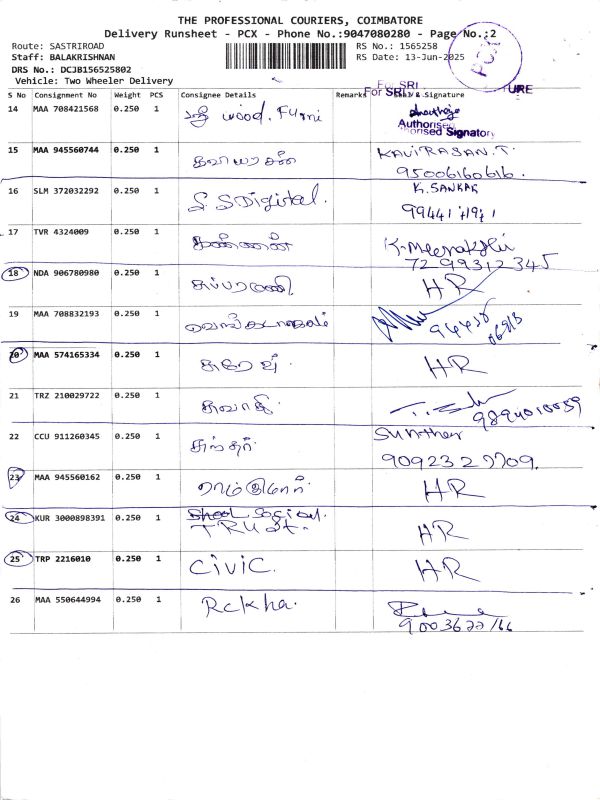 THE PROFESSIONAL COURIERS, COIMBATORE
Delivery Runsheet - PCX - Phone No.:9047080280 - Page No.:2
Route: SASTRIROAD
RS No.: 1565258
Staff: BALAKRISHNAN
RS Date: 13-Jun-2025
DRS No.: DCJB156525802
Vehicle: Two Wheeler Delivery
PCX
For SRI
S No Consignment No Weight PCS Consignee Details Remarks & Signature
14 MAA 708421568 0.250 1 wood. Furni
Authorised Signatory
15 MAA 945560744 0.250 1 KAVIRASAN.T.
95006160616.
16 SLM 372032292 0.250 1 S.S Digital. K. SANKAR
99441
17 TVR 4324009 0.250 1 கண்ணன் K. Meenakshi
72 99312345
18 NDA 906780980 0.250 1 சுப்பரமணி HR
19 MAA 708832193 0.250 1
20 MAA 574165334 0.250 1 சுரேஷ் HR
21 TRZ 210029722 0.250 1 9894010059
22 CCU 911260345 0.250 1 சுந்தர். Sunther
9092322709.
23 MAA 945560162 0.250 1 HR
24 KUR 3000898391 0.250 1 Social.
TRUST. HR
25 TRP 2216010 0.250 1 CIVIC. HR
26 MAA 550644994 0.250 1 Rekha.
9003622166